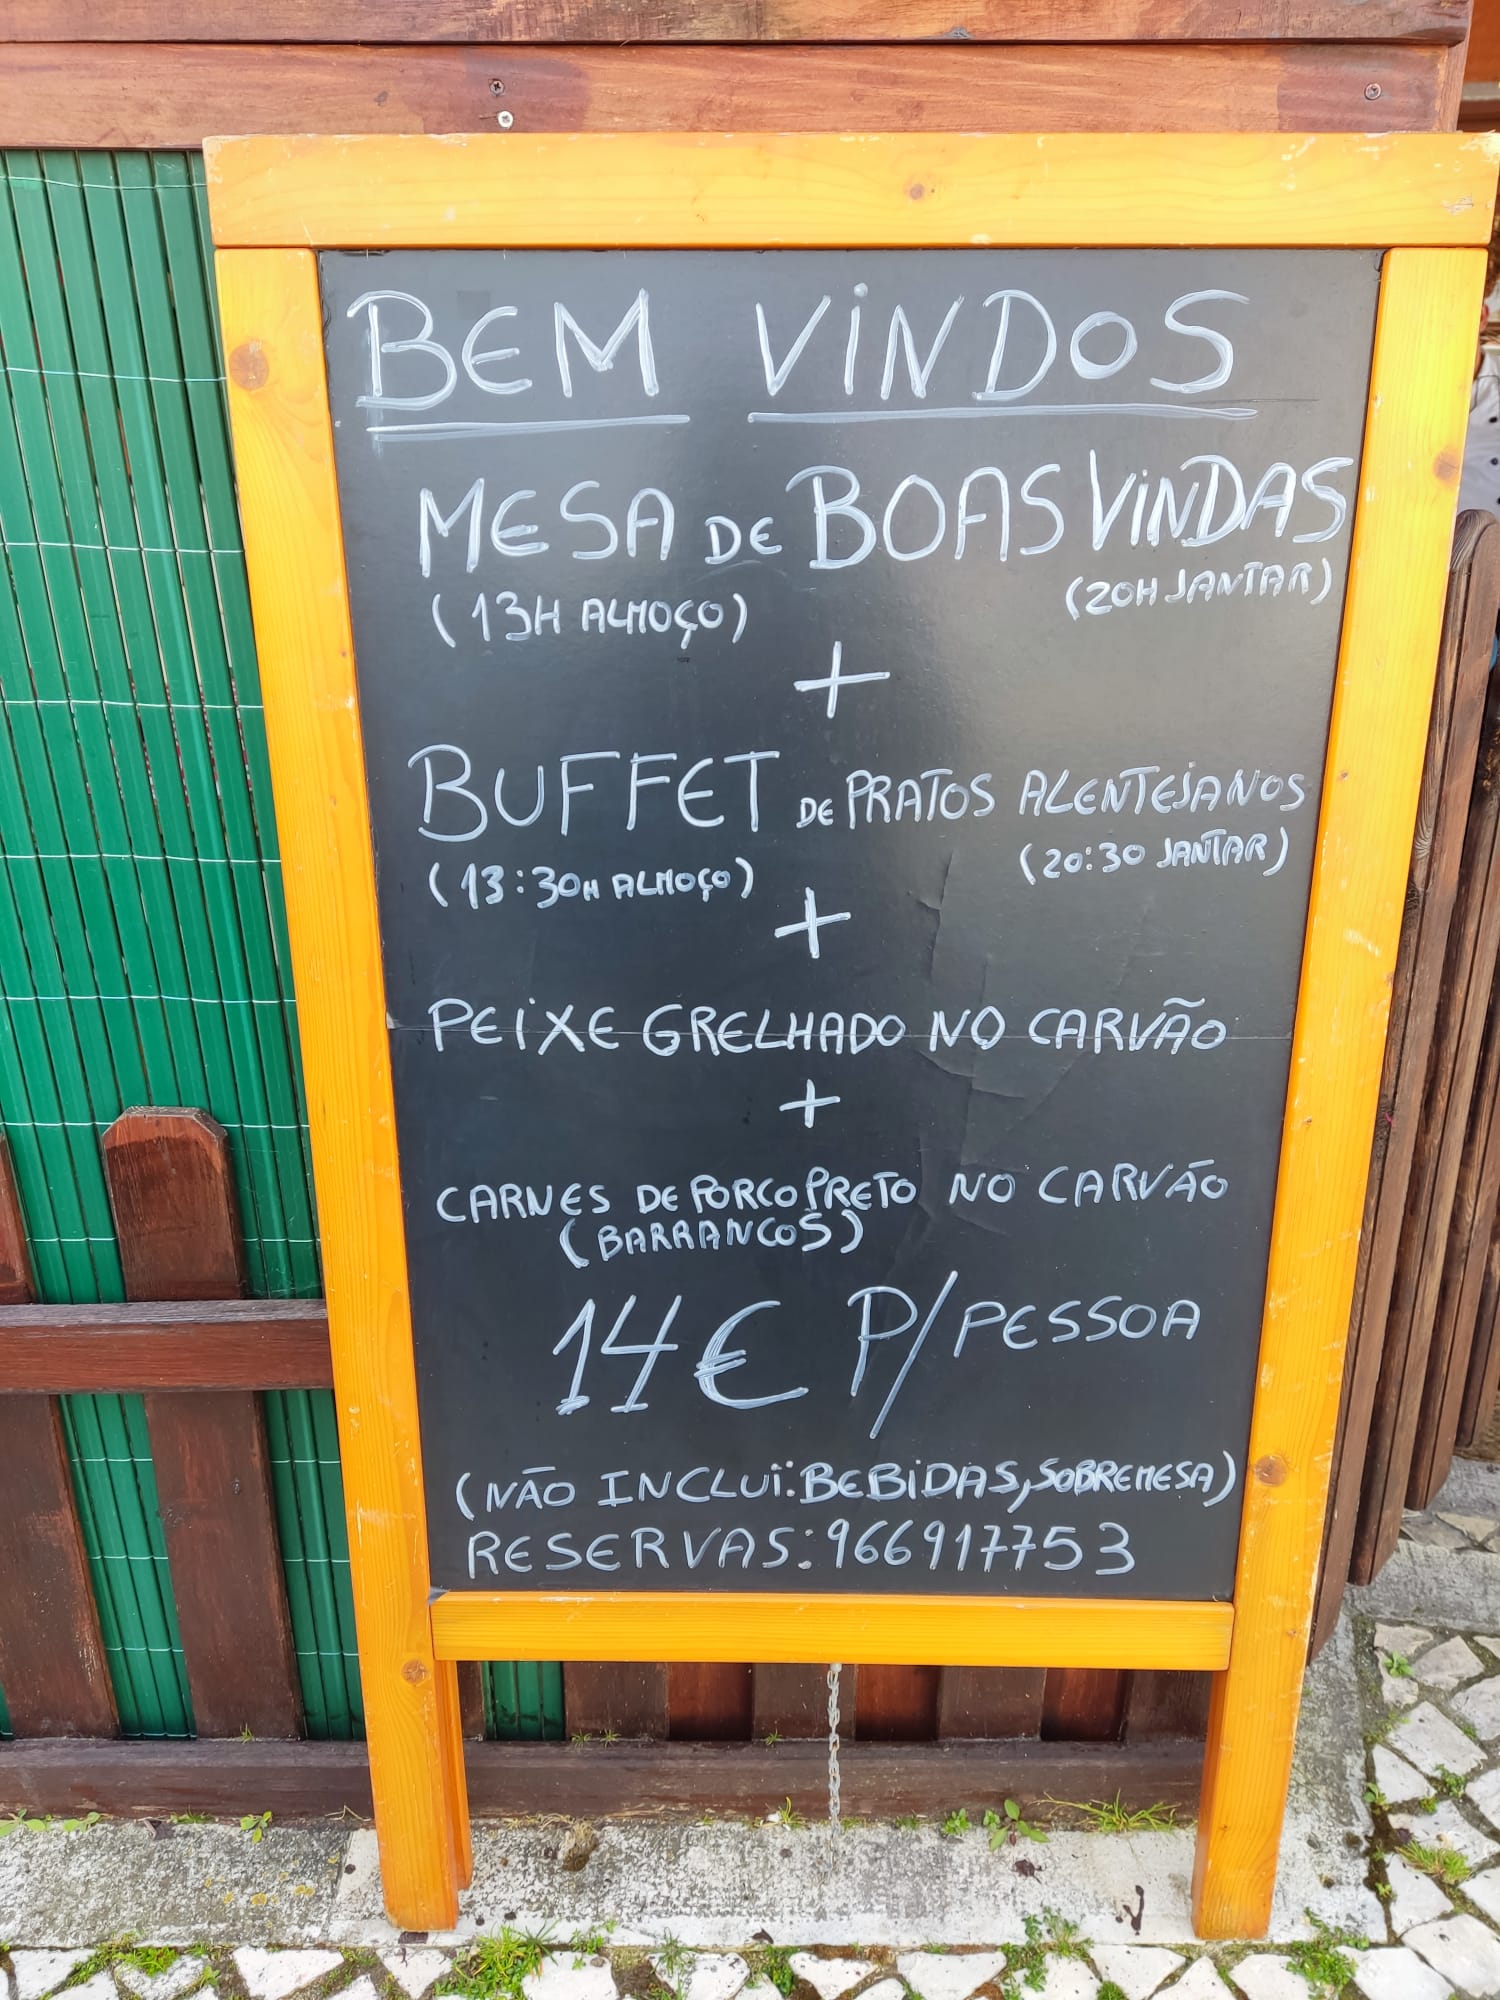 BEM VINDOS
MESA DE BOAS VINDAS
(13H ALMOÇO) (20H JANTAR)
+
BUFFET DE PRATOS ALENTEJANOS
(13:30H ALMOÇO) (20:30 JANTAR)
+
PEIXE GRELHADO NO CARVÃO
+
CARNES DE PORCO PRETO NO CARVÃO
(BARRANCOS)
14€ P/PESSOA
(NÃO INCLUÏ: BEBIDAS, SOBREMESA)
RESERVAS: 966917753